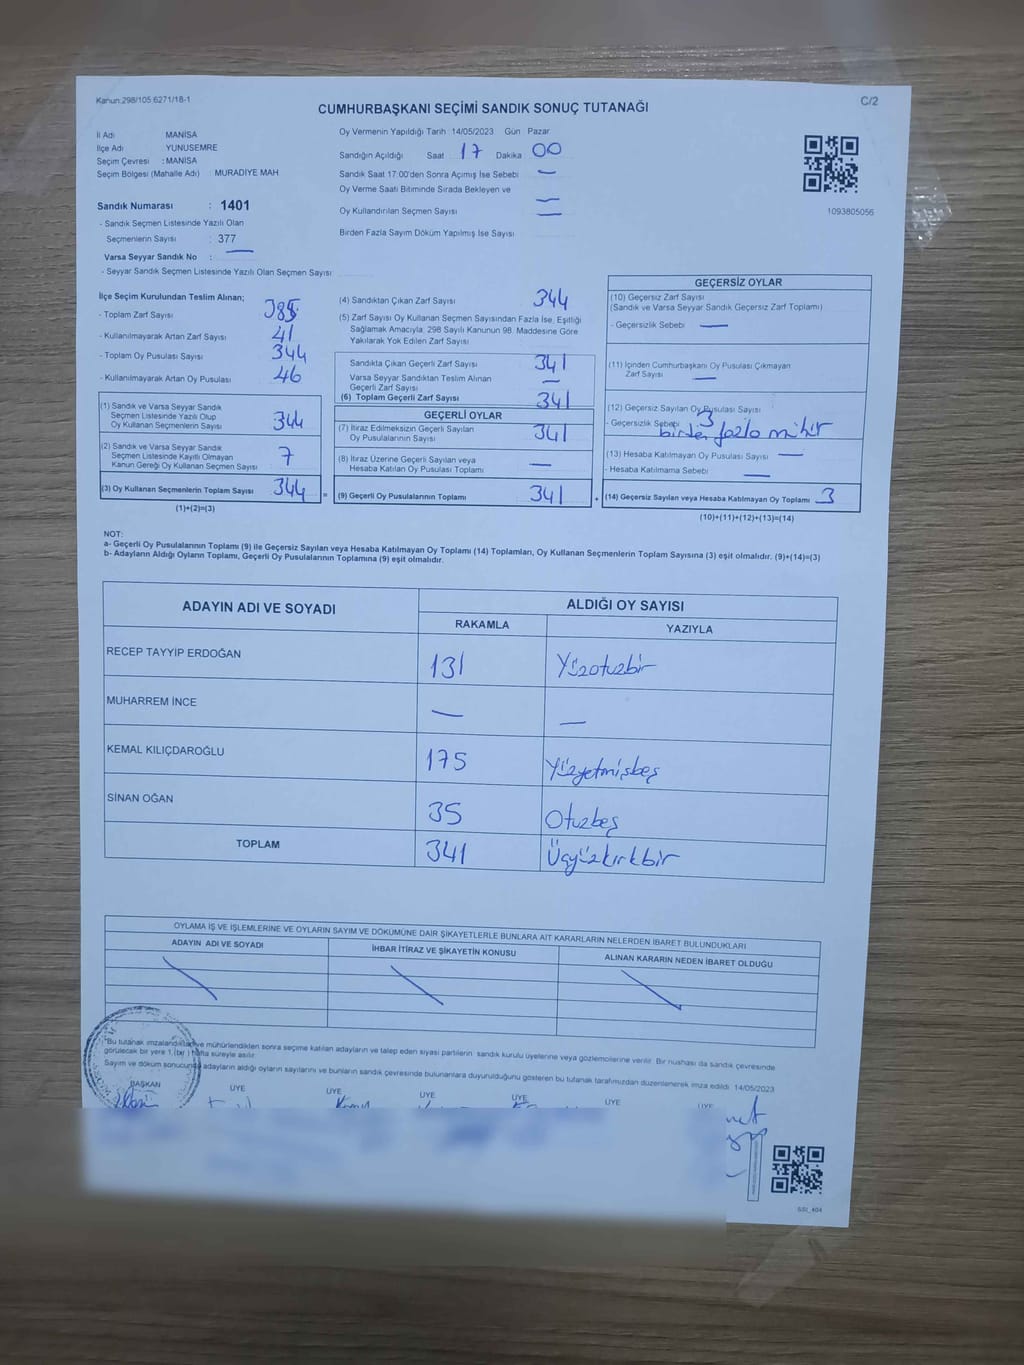 Kanun:298/105 6271/18-1
C/2
CUMHURBAŞKANI SEÇİMİ SANDIK SONUÇ TUTANAĞI
İl Adı MANİSA
İlçe Adı YUNUSEMRE
Seçim Çevresi : MANİSA
Seçim Bölgesi (Mahalle Adı) : MURADİYE MAH
Sandık Numarası : 1401
- Sandık Seçmen Listesinde Yazılı Olan
Seçmenlerin Sayısı : 377
Varsa Seyyar Sandık No : —
- Seyyar Sandık Seçmen Listesinde Yazılı Olan Seçmen Sayısı
Oy Vermenin Yapıldığı Tarih 14/05/2023 Gün Pazar
Sandığın Açıldığı Saat 17 Dakika 00
Sandık Saat 17:00'den Sonra Açımış İse Sebebi —
Oy Verme Saati Bitiminde Sırada Bekleyen ve —
Oy Kullandırılan Seçmen Sayısı —
Birden Fazla Sayım Döküm Yapılmış İse Sayısı
1093805056
İlçe Seçim Kurulundan Teslim Alınan;
- Toplam Zarf Sayısı 385
- Kullanılmayarak Artan Zarf Sayısı 41
- Toplam Oy Pusulası Sayısı 344
- Kullanılmayarak Artan Oy Pusulası 46
(1) Sandık ve Varsa Seyyar Sandık
Seçmen Listesinde Yazılı Olup
Oy Kullanan Seçmenlerin Sayısı 344
(2) Sandık ve Varsa Seyyar Sandık
Seçmen Listesinde Kayıtlı Olmayan
Kanun Gereği Oy Kullanan Seçmen Sayısı 7
(3) Oy Kullanan Seçmenlerin Toplam Sayısı 344 =
(1)+(2)=(3)
(4) Sandıktan Çıkan Zarf Sayısı 344
(5) Zarf Sayısı Oy Kullanan Seçmen Sayısından Fazla İse, Eşitliği
Sağlamak Amacıyla; 298 Sayılı Kanunun 98. Maddesine Göre
Yakılarak Yok Edilen Zarf Sayısı
Sandıkta Çıkan Geçerli Zarf Sayısı 341
Varsa Seyyar Sandıktan Teslim Alınan
Geçerli Zarf Sayısı —
(6) Toplam Geçerli Zarf Sayısı 341
GEÇERLİ OYLAR
(7) İtiraz Edilmeksizin Geçerli Sayılan
Oy Pusulalarının Sayısı 341
(8) İtiraz Üzerine Geçerli Sayılan veya
Hesaba Katılan Oy Pusulası Toplamı —
(9) Geçerli Oy Pusulalarının Toplamı 341 +
GEÇERSİZ OYLAR
(10) Geçersiz Zarf Sayısı
(Sandık ve Varsa Seyyar Sandık Geçersiz Zarf Toplamı)
- Geçersizlik Sebebi —
(11) İçinden Cumhurbaşkanı Oy Pusulası Çıkmayan
Zarf Sayısı —
(12) Geçersiz Sayılan Oy Pusulası Sayısı 3
- Geçersizlik Sebebi birden fazla mühür
(13) Hesaba Katılmayan Oy Pusulası Sayısı —
- Hesaba Katılmama Sebebi —
(14) Geçersiz Sayılan veya Hesaba Katılmayan Oy Toplamı 3
(10)+(11)+(12)+(13)=(14)
NOT:
a- Geçerli Oy Pusulalarının Toplamı (9) ile Geçersiz Sayılan veya Hesaba Katılmayan Oy Toplamı (14) Toplamları, Oy Kullanan Seçmenlerin Toplam Sayısına (3) eşit olmalıdır. (9)+(14)=(3)
b- Adayların Aldığı Oyların Toplamı, Geçerli Oy Pusulalarının Toplamına (9) eşit olmalıdır.
ADAYIN ADI VE SOYADI ALDIĞI OY SAYISI
RAKAMLA YAZIYLA
RECEP TAYYİP ERDOĞAN 131 Yüzotuzbir
MUHARREM İNCE — —
KEMAL KILIÇDAROĞLU 175 Yüzyetmişbeş
SİNAN OĞAN 35 Otuzbeş
TOPLAM 341 Üçyüzkırkbir
OYLAMA İŞ VE İŞLEMLERİNE VE OYLARIN SAYIM VE DÖKÜMÜNE DAİR ŞİKAYETLERLE BUNLARA AİT KARARLARIN NELERDEN İBARET BULUNDUKLARI
ADAYIN ADI VE SOYADI İHBAR İTİRAZ VE ŞİKAYETİN KONUSU ALINAN KARARIN NEDEN İBARET OLDUĞU
*Bu tutanak imzalandıktan ve mühürlendikten sonra seçime katılan adayların ve talep eden siyasi partilerin sandık kurulu üyelerine veya gözlemcilerine verilir. Bir nushası da sandık çevresinde
görülecek bir yere 1 (bir) hafta süreyle asılır.
Sayım ve döküm sonucunda adayların aldığı oyların sayılarını ve bunların sandık çevresinde bulunanlara duyurulduğunu gösteren bu tutanak tarafımızdan düzenlenerek imza edildi. 14/05/2023
BAŞKAN ÜYE ÜYE ÜYE ÜYE ÜYE ÜYE
SSI_404